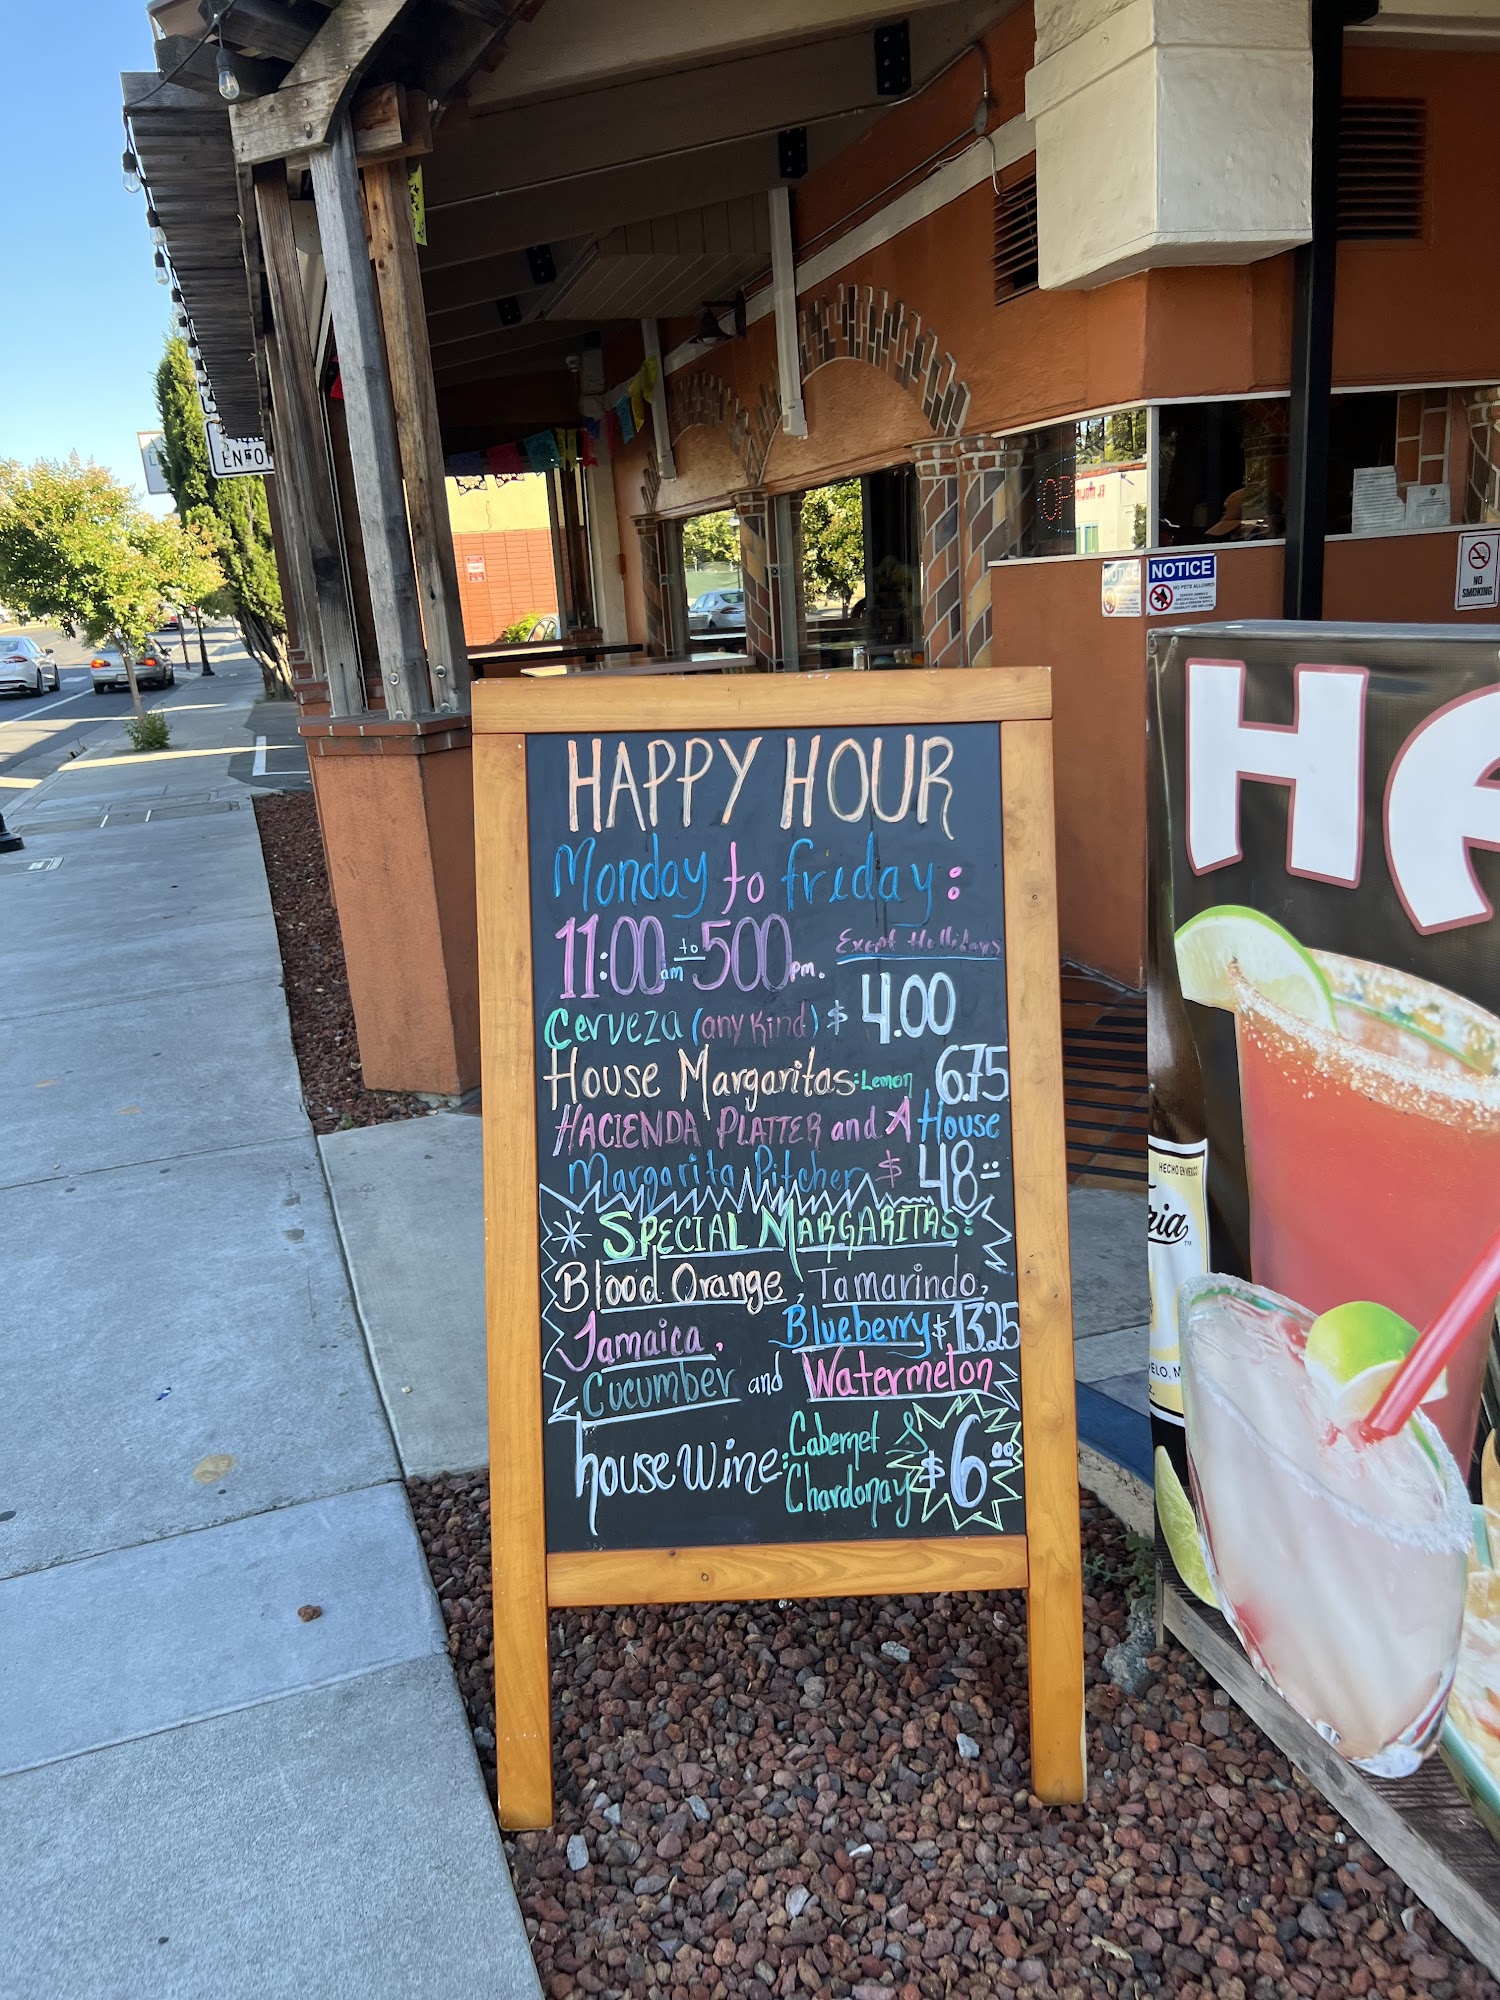 HAPPY HOUR
Monday to friday:
11:00 am to 500 pm. Exept Hollidays
Cerveza (any Kind) $ 4.00
House Margaritas: Lemon 6.75
HACIENDA PLATTER and A House
Margarita Pitcher $ 48=
SPECIAL MARGARITAS:
Blood Orange, Tamarindo,
Jamaica, Blueberry $13.25
Cucumber and Watermelon
house wine: Cabernet &
Chardonay $6.00
NOTICE
NOTICE
NO PETS ALLOWED
NO
SMOKING
HA
HECHO EN
ria